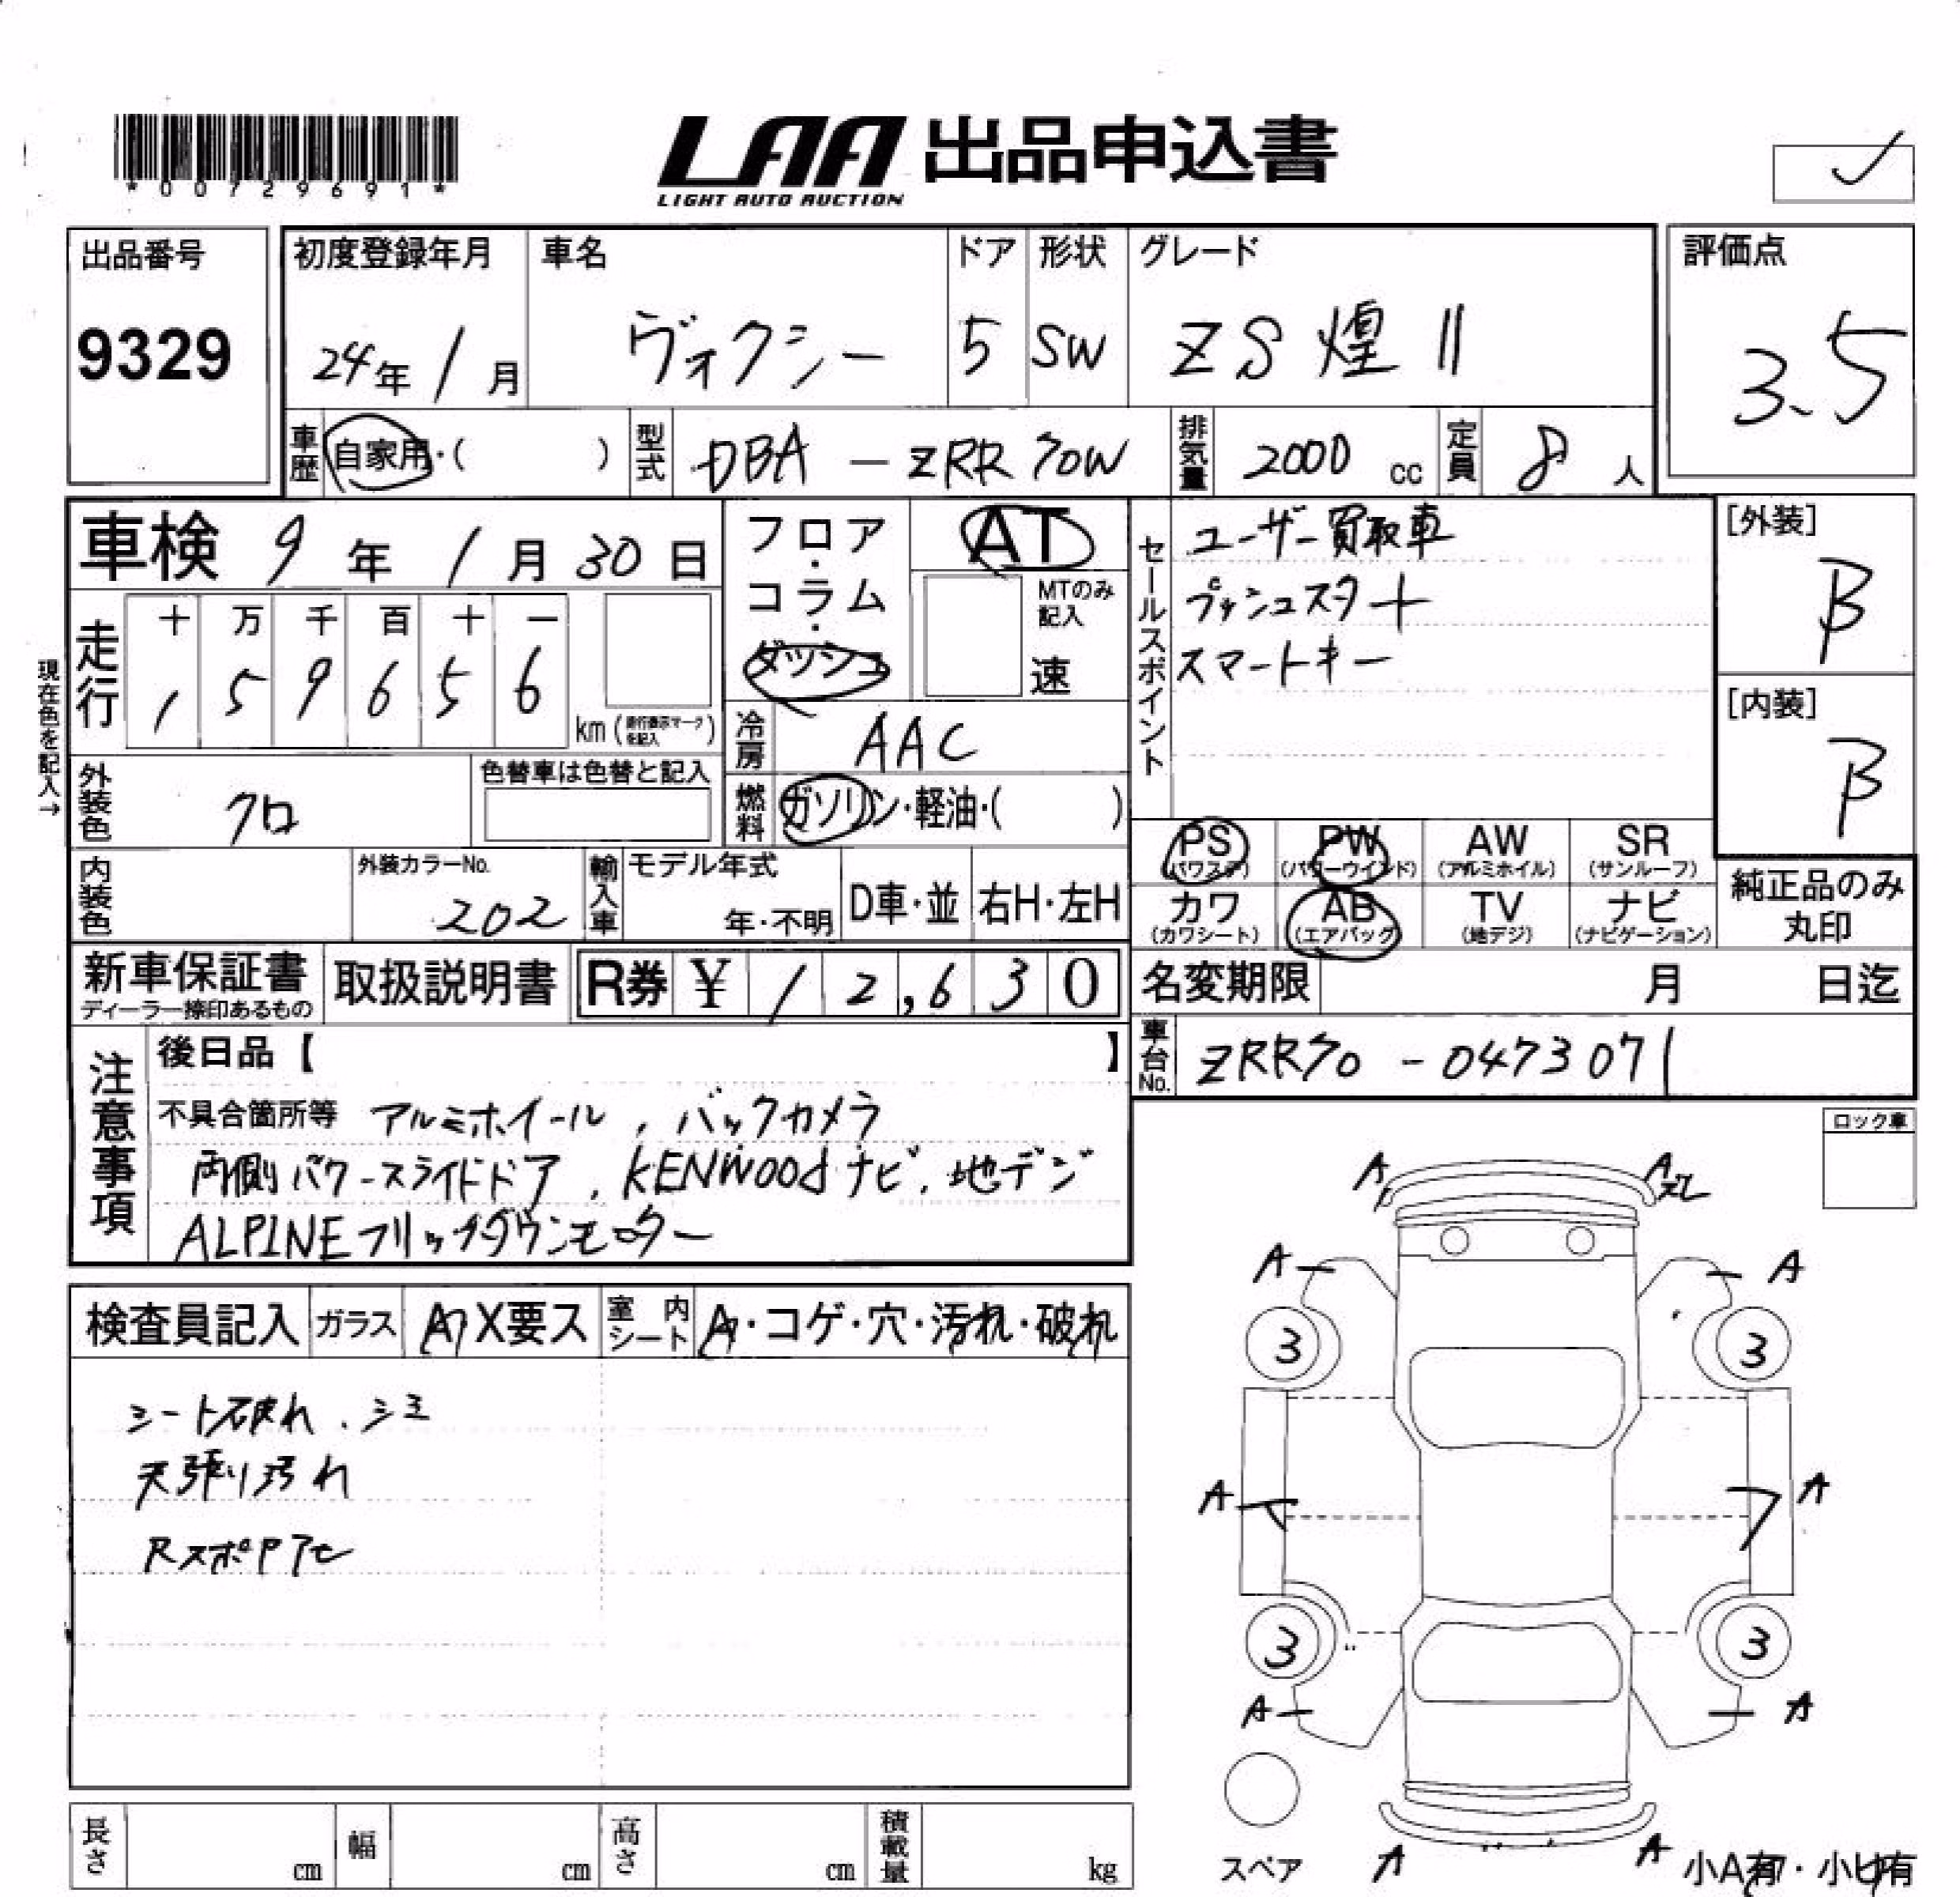 *00729691*
LAA 出品申込書
LIGHT AUTO AUCTION
出品番号
9329
初度登録年月
24年 1月
車名
ヴォクシー
ドア
5
形状
SW
グレード
ZS 煌 II
評価点
3.5
車歴 自家用・( )
型式 DBA - ZRR70W
排気量 2000 cc
定員 8 人
車検 9年 1月 30日
走行
十 万 千 百 十 一
1 5 9 6 5 6
km (走行表示マークを記入)
現在色を記入→
フロア・コラム・ダッシュ
AT
MTのみ記入
速
冷房 AAC
燃料 ガソリン・軽油・( )
セールスポイント
ユーザー買取車
プッシュスタート
スマートキー
[外装]
B
[内装]
B
外装色 クロ
色替車は色替と記入
内装色
外装カラーNo.
202
輸入車
モデル年式
年・不明
D車・並
右H・左H
PS (パワステ)
PW (パワーウインド)
AW (アルミホイル)
SR (サンルーフ)
カワ (カワシート)
AB (エアバック)
TV (地デジ)
ナビ (ナビゲーション)
純正品のみ丸印
新車保証書
ディーラー捺印あるもの
取扱説明書
R券 ¥ 12,630
名変期限 月 日迄
車台No. ZRR70-0473071
注意事項
後日品【 】
不具合箇所等 アルミホイール, バックカメラ
両側パワースライドドア, KENWOODナビ, 地デジ
ALPINEフリップダウンモニター
ロック車
検査員記入
ガラス A X要ス
室内シート A・コゲ・穴・汚れ・破れ
シート破れ、シミ
天張り汚れ
A A
A A
3 3
A A
3 3
A A
A A
スペア
小A有・小U有
長さ cm
幅 cm
高さ cm
積載量 kg